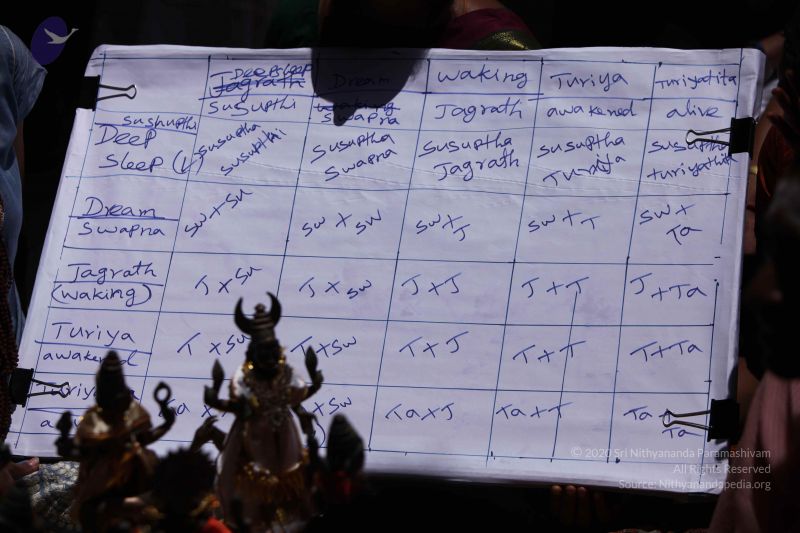 Deepsleep Dream waking Turiya Turiyatita
Jagrath
Susupthi Swapna Jagrath awakened alive
Sushupthi
Deep Susuptha Susuptha Susuptha Susuptha Susuptha
Sleep Susupthi Swapna Jagrath Turiya turiyathita
Dream Sw x Su Sw x Sw Sw x J Sw x T Sw x
Swapna Ta
Jagrath J x Su J x Sw J x J J x T J x Ta
(waking)
Turiya T x Su T x Sw T x J T x T T x Ta
awakened
x Sw Ta x J Ta x T Ta
Ta
© 2020 Sri Nithyananda Paramashivam
All Rights Reserved
Source: Nithyanandapedia.org